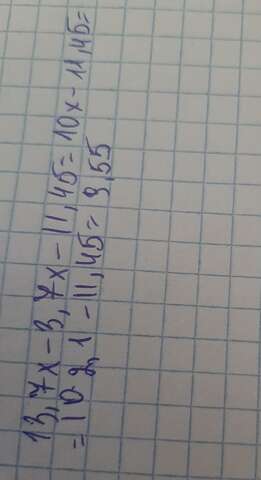 13,7x-3,7x-11,45=10x-11,45=
=10 2,1-11,45= 9,55